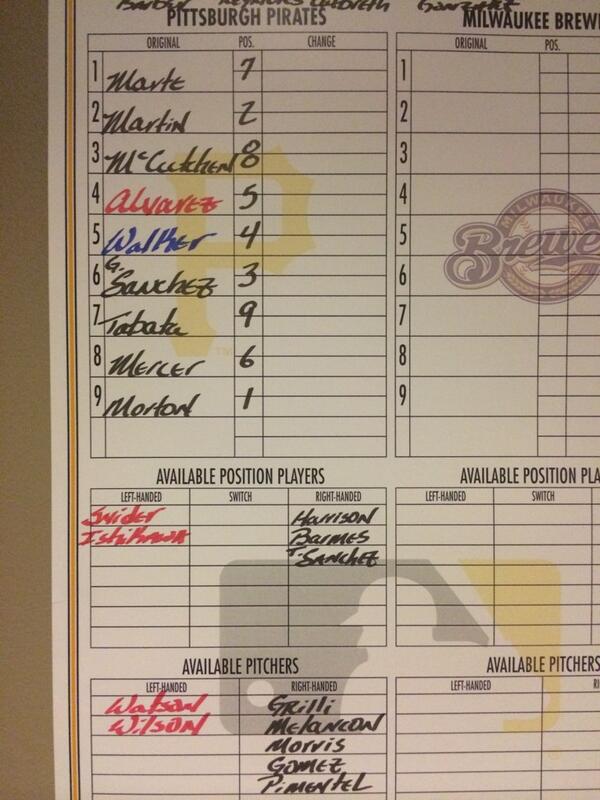 PITTSBURGH PIRATES
MILWAUKEE BREWE
ORIGINAL POS. CHANGE
ORIGINAL POS.
1 Marte 7
2 Martin 2
3 McCutchen 8
4 Alvarez 5
5 Walker 4
6 G. Sanchez 3
7 Tabata 9
8 Mercer 6
9 Morton 1
1
2
3
4
5
6
7
8
9
MILWAUKEE
Brewe
P
TM
AVAILABLE POSITION PLAYERS
LEFT-HANDED SWITCH RIGHT-HANDED
Snider Harrison
Ishikawa Barmes
T. Sanchez
AVAILABLE POSITION PLA
LEFT-HANDED SWITCH
AVAILABLE PITCHERS
LEFT-HANDED RIGHT-HANDED
Watson Grilli
Wilson Melancon
Morris
Gomez
Pimentel
AVAILABLE PITCHERS
LEFT-HANDED RI